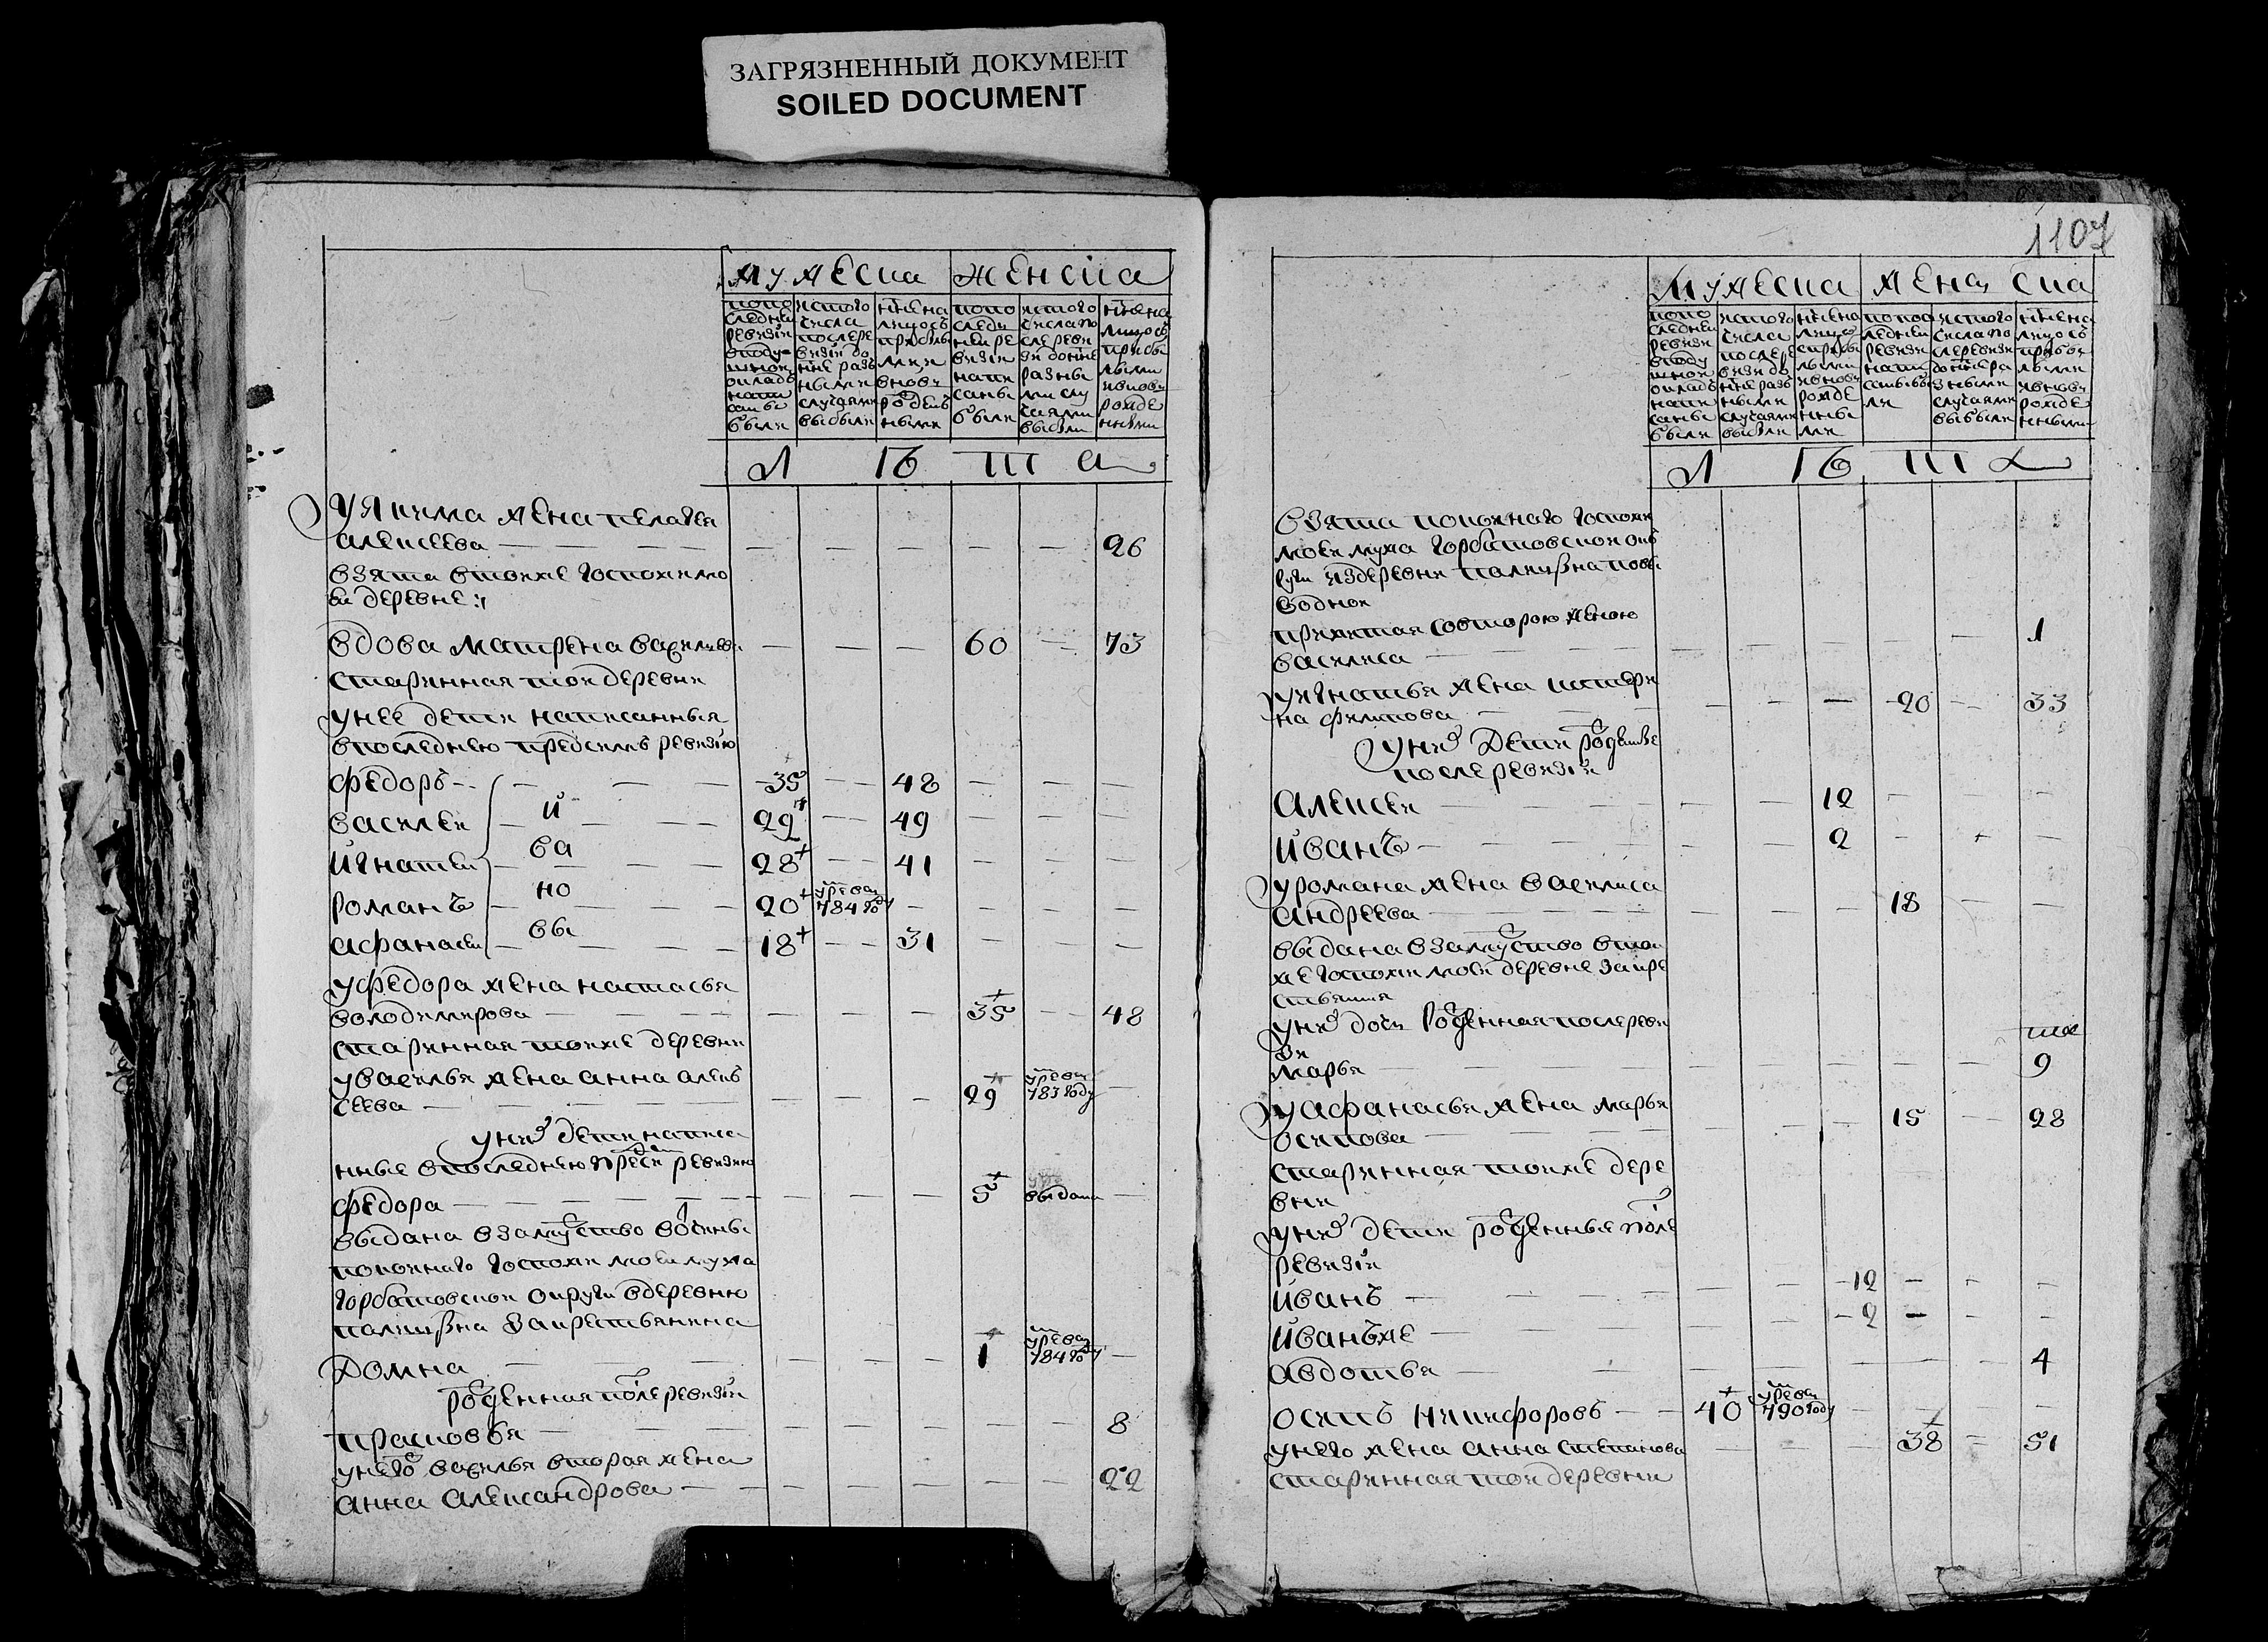 ЗАГРЯЗНЕННЫЙ ДОКУМЕНТ
SOILED DOCUMENT
мужеска женска
попо последней ревизии в подушной окладъ написаны были
ис того числа после ревизии до ныне разными случаями выбыли
ныне на лицо съ прибылми и вновь рожденными
попоследней ревизии написаны были
ис того числа по сле ревизии до ныне разными случаями выбыли
ныне на лицо съ прибылыми и вновь рожденными
л ѣ т а
у якима жена пелагея
алексеева 26
взята в тойже госпожи мо
ей деревне
вдова матрена васильева 60 73
старинная той деревни
у нее дети написанныя
в последнею пред симъ ревизию
федоръ 35 48
василей й 29 49
игнатей ва 28 41
романъ но 20 умре въ 784 году
афанасей вы 18 31
у федора жена настасья
володимерова 35 48
старинная тойже деревни
у василья жена анна алекъ
сеева 29 умре въ 783 году
у них дети написа
нные в последнею пред сим ревизию
федора 5 выдана
выдана в замуство в вотчины
покойнаго госпожи моей мужа
горбатовской округи в деревню
палкину за крестьянина
домна 1 умре въ 784 году
рожденная после ревизии
прасковья 8
у него василья вторая жена
анна александрова 22
1107
мужеска женска
попо следней ревизии в подушной окладъ написаны были
ис того числа после ревизии до ныне разными случаями выбыли
ныне на лицо с прибылыми и вновь рожденными
попоследней ревизии написаны были
ис того числа по сле ревизии до ныне разными случаями выбыли
ныне на лицо съ прибылыми и вновь рожденными
л ѣ т а
взята покойнаго госпожи
моей мужа горбатовской окъ
руги из деревни
прижитая со второю женою
василиса 1
у игнатья жена катери
на филипова 20 33
у них дети рожденные
после ревизии
алексей 12
иванъ 2
у романа жена василиса
андреева 18
выдана в замуство в той
же госпожи моей деревне за кре
стьянина
у них дочь рожденная после реви
зи
марья 9
у афанасья жена марья
осипова 15 28
старинная тойже дере
вни
у них дети рожденныя после
ревизии
иванъ 12
иванъже 2
авдотья 4
осипъ никифоровъ 40 умре въ 790 году
у него жена анна степанова 38 51
старинная той деревни